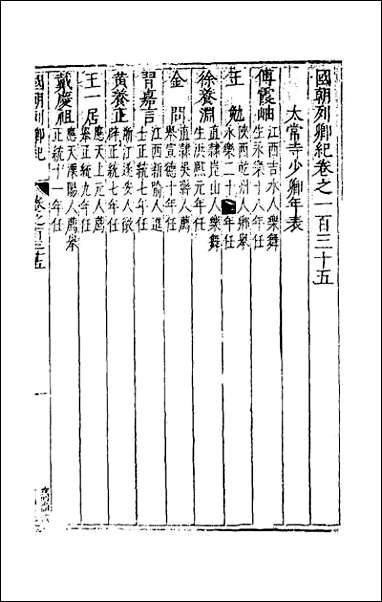 國朝列卿紀卷之一百三十五
太常寺少卿年表
傅霞岫
江西吉水人樂舞
生永樂十八年任
王勉
陝西乾州人鄉舉
永樂二十年任
徐養淵
直隸崑山人樂舞
生洪熙元年任
金問
直隸吳縣人薦
舉宣德十年任
習嘉言
江西新喻人進
士正統七年任
黃養正
浙江遂安人徵
辟正統七年任
王一居
應天上元人薦
舉正統九年任
戴慶祖
應天溧陽人薦舉
正統十一年任
國朝列卿紀
卷之百三十五
一